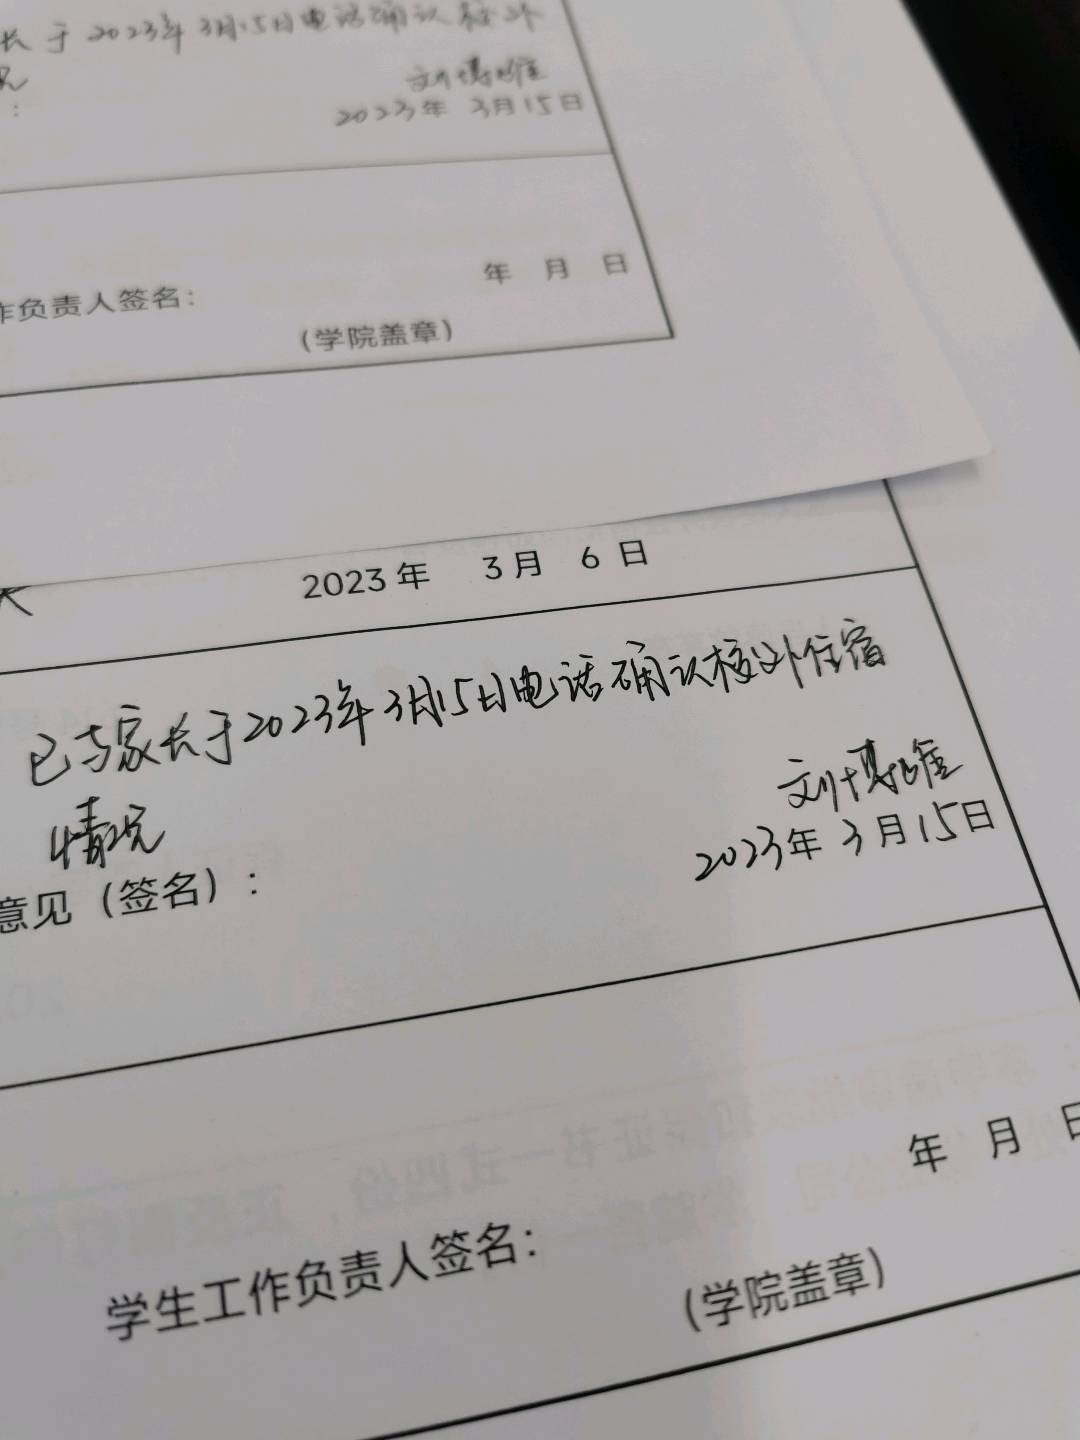 长于2023年3月15日电话确认校外
况
:
2023年 3月15日
年 月 日
作负责人签名:
(学院盖章)
2023年 3月 6日
已与家长于2023年3月15日电话确认校外住宿
情况
刘博
2023年3月15日
意见(签名):
年 月 日
学生工作负责人签名:
(学院盖章)